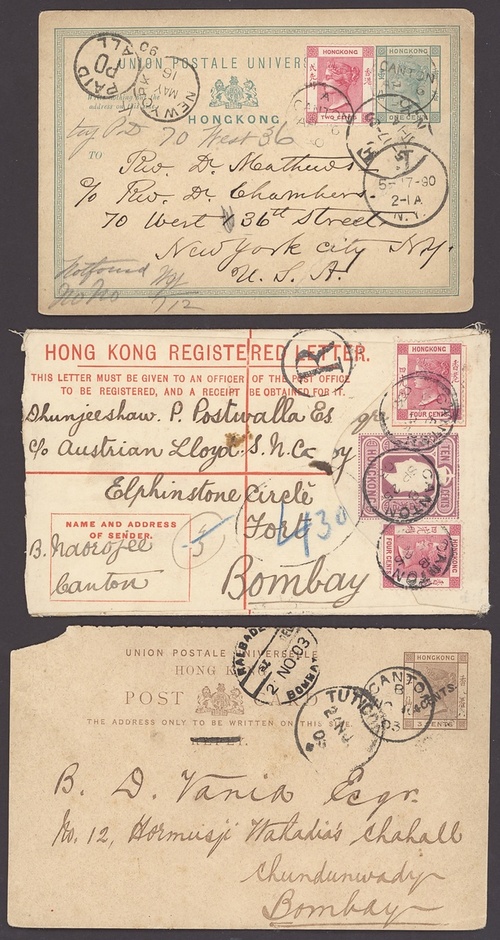 UNION POSTALE UNIVERS
HONGKONG
TWO CENTS
HONGKONG
ONE CENT
CANTON
PAID
ALL
NEW YORK
MAY
16
90
HONGKONG
70 West 36
TO
Rev. Dr. Mathews
c/o Rev. Dr. Chambers
70 West 36th Street
New York city N.Y.
U. S. A.
T
5-17-90
2-1A
N.Y.
Notfound
No No
1/12
HONG KONG REGISTERED LETTER.
R
THIS LETTER MUST BE GIVEN TO AN OFFICER OF THE POST OFFICE
TO BE REGISTERED, AND A RECEIPT BE OBTAINED FOR IT.
HONGKONG
FOUR CENTS
Dhunjeeshaw. P. Postwalla Es
c/o Austrian Lloyd. S. N. Co
Elphinstone Circle
Fort
Bombay
HONGKONG
TEN
CANTON
HONGKONG
FOUR CENTS
CANTON
NAME AND ADDRESS
OF SENDER.
B. Naorojee
Canton
430
UNION POSTALE UNIVERSELLE
HONG K
POST CARD
THE ADDRESS ONLY TO BE WRITTEN ON THIS SIDE
REPLY
KALBADE
2 NO.03
BOMBAY
TUTICO
CANTON
B
03
HONGKONG
CENTS.
3 CENTS
B. D. Vania Esqr.
No. 12, Hormusji Wahadia's Chahall
Chundunwady
Bombay